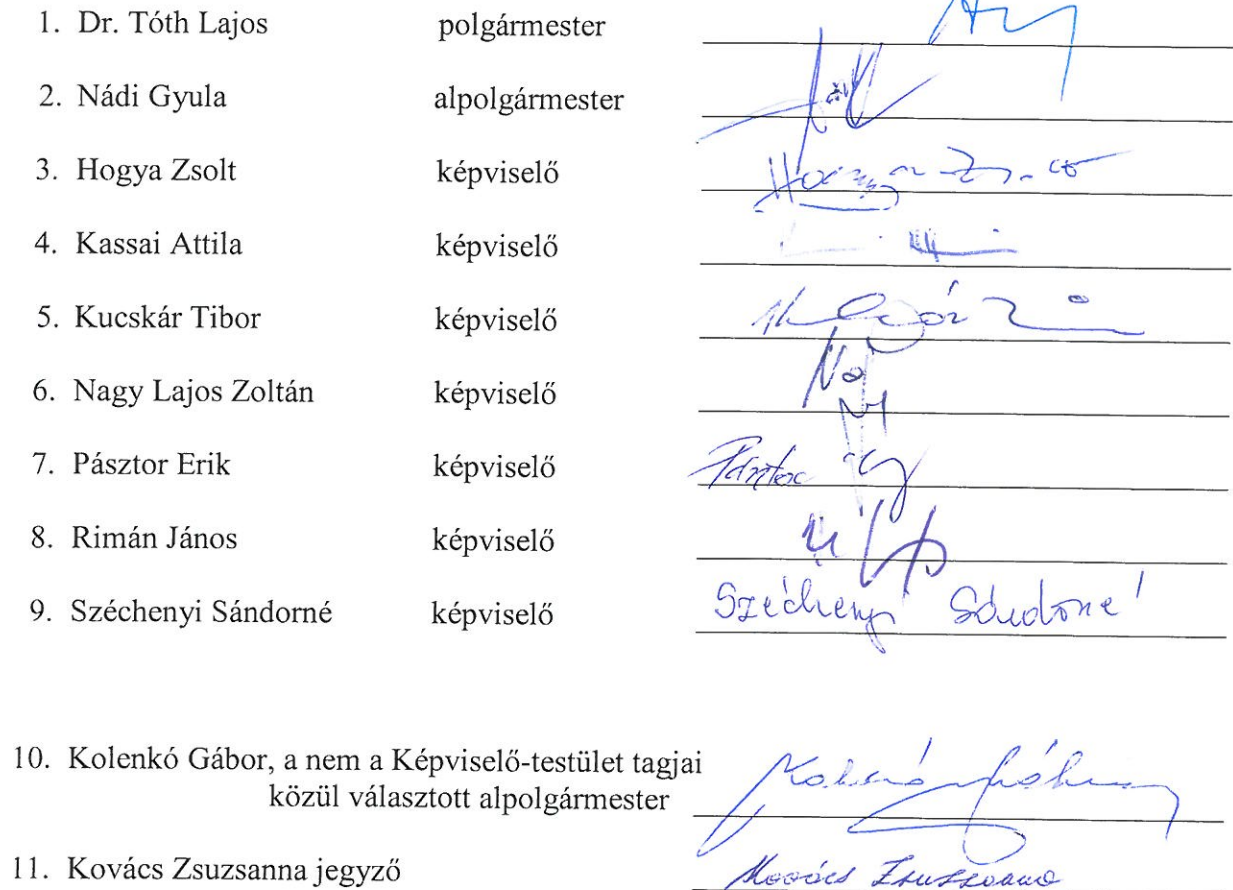 1. Dr. Tóth Lajos polgármester
2. Nádi Gyula alpolgármester
3. Hogya Zsolt képviselő
4. Kassai Attila képviselő
5. Kucskár Tibor képviselő
6. Nagy Lajos Zoltán képviselő
7. Pásztor Erik képviselő
8. Rimán János képviselő
9. Széchenyi Sándorné képviselő Széchenyi Sándorné
10. Kolenkó Gábor, a nem a Képviselő-testület tagjai
közül választott alpolgármester
11. Kovács Zsuzsanna jegyző Kovács Zsuzsanna